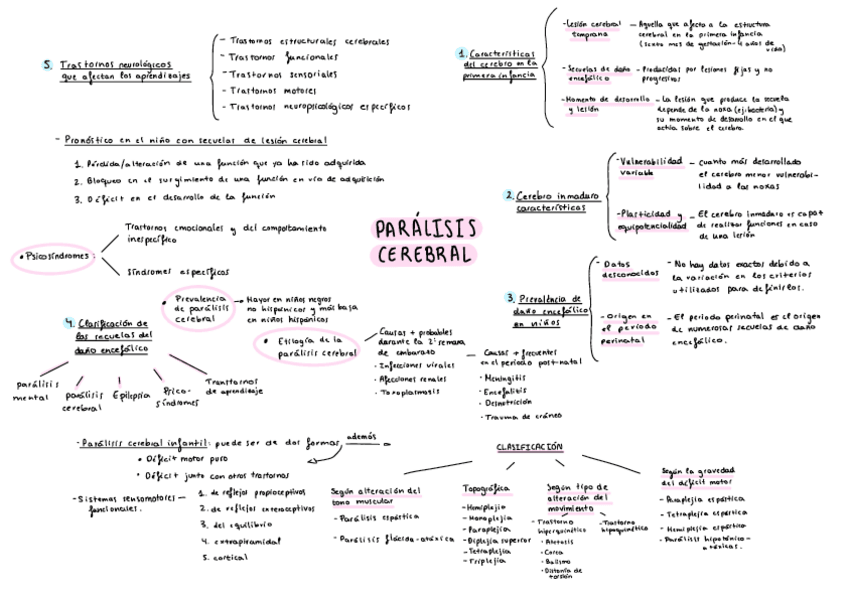 PARÁLISIS
CEREBRAL
1. Características
del cerebro en la
primera infancia
-Lesión cerebral
temprana
- Aquella que afecta a la estructura
cerebral en la primera infancia
(sexto mes de gestación-4 años de
vida)
-Secuelas de daño
encefálico
- Producidas por lesiones fijas y no
progresivas
-Momento de desarrollo
y lesión
- La lesión que produce la secuela
depende de la noxa (ej: bacteria) y
su momento de desarrollo en el que
actúa sobre el cerebro.
2. Cerebro inmaduro
características
-Vulnerabilidad
variable
- Cuanto más desarrollado
el cerebro menor vulnerabi-
lidad a las noxas
-Plasticidad y
equipotencialidad
- El cerebro inmaduro es capaz
de realizar funciones en caso
de una lesión
3. Prevalencia de
daño encefálico
en niños
- Datos
desconocidos
- No hay datos exactos debido a
la variación en los criterios
utilizados para definirlos.
- Origen en
el periodo
perinatal
- El periodo perinatal es el origen
de numerosas secuelas de daño
encefálico.
4. Clasificación de
las secuelas del
daño encefálico
parálisis
mental
parálisis
cerebral
Epilepsia
Psico-
síndromes
Transtornos
de aprendizaje
5. Trastornos neurológicos
que afectan los aprendizajes
- Trastornos estructurales cerebrales
- Trastornor funcionales
- Trastornos sensoriales
- Trastornos motores
- Trastornos neuropsicológicos específicos
- Pronóstico en el niño con secuelas de lesión cerebral
1. Pérdida/alteración de una función que ya ha sido adquirida
2. Bloqueo en el surgimiento de una función en vía de adquisición
3. Déficit en el desarrollo de la función
• Psicosíndromes:
Trastornos emocionales y del comportamiento
inespecífico
Síndromes específicos
• Prevalencia
de parálisis
cerebral
→ Mayor en niños negros
no hispánicos y más baja
en niños hispánicos
• Etiología de la
parálisis cerebral
Causas + probables
durante la 2ª semana
de embarazo
· Infecciones virales
· Afecciones renales
· Toxoplasmosis
- Causas + frecuentes
en el periodo post-natal
· Meningitis
· Encefalitis
· Desnutrición
· Trauma de cráneo
- Parálisis cerebral infantil: puede ser de dos formas, además
• Déficit motor puro
• Déficit junto con otros trastornos
- Sistemas sensomotores
funcionales.
1. de reflejos propioceptivos
2. de reflejos exteroceptivos
3. del equilibrio
4. extrapiramidal
5. cortical
CLASIFICACIÓN
Según alteración del
tono muscular
- Parálisis espástica
- Parálisis fláccida-atáxica
Topográfica
-Hemiplejia
-Monoplejia
-Paraplejia
-Diplejia superior
-Tetraplejia
-Triplejia
Según tipo de
alteración del
movimiento
- Trastorno
hiperquinético
• Atetosis
• Corea
• Balismo
• Distonía de
torsión
-Trastorno
hipoquinético
Según la gravedad
del déficit motor
- Paraplejia espástica
- Tetraplejia espástica
- Hemiplejia espástica
- Parálisis hipotónico-
atáxicas.